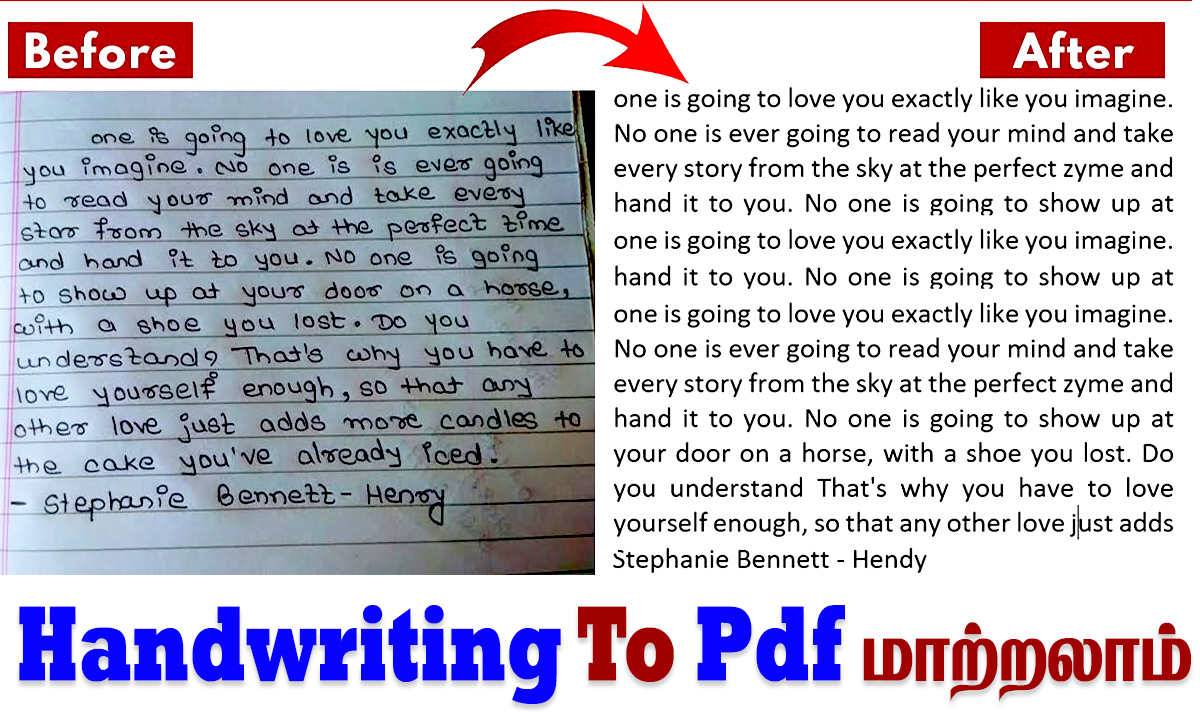 Before
After
one is going to love you exactly like
you imagine. No one is is ever going
to read your mind and take every
star from the sky at the perfect time
and hand it to you. No one is going
to show up at your door on a horse,
with a shoe you lost. Do you
understand? That's why you have to
love yourself enough, so that any
other love just adds more candles to
the cake you've already iced.
- Stephanie Bennett - Henry
one is going to love you exactly like you imagine.
No one is ever going to read your mind and take
every story from the sky at the perfect zyme and
hand it to you. No one is going to show up at
one is going to love you exactly like you imagine.
hand it to you. No one is going to show up at
one is going to love you exactly like you imagine.
No one is ever going to read your mind and take
every story from the sky at the perfect zyme and
hand it to you. No one is going to show up at
your door on a horse, with a shoe you lost. Do
you understand That's why you have to love
yourself enough, so that any other love just adds
Stephanie Bennett - Hendy
Handwriting To Pdf மாற்றலாம்